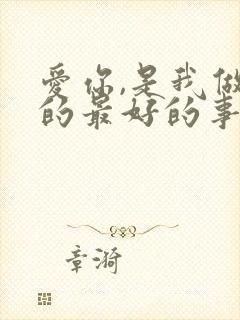 爱你,是我做
的最好的事
章漪